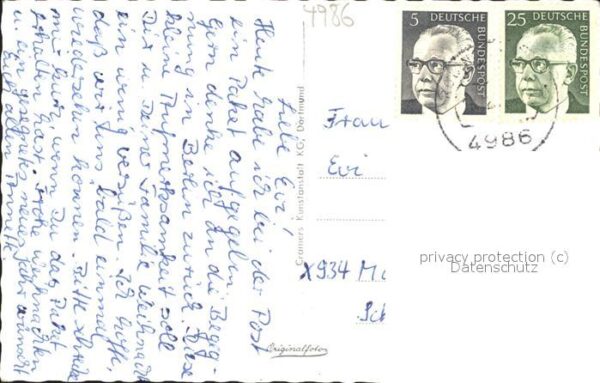 4986
5 DEUTSCHE BUNDESPOST
25 DEUTSCHE BUNDESPOST
4986
Liebe Evi!
Heute habe ich bei der Post
ein Paket aufgegeben.
Gern denke ich an die Begeg-
nung in Berlin zurück. Diese
kleine Aufmerksamkeit soll
Dir u. Deiner Familie Weihnacht
ein wenig versüßen. Ich hoffe,
daß wir uns bald einmal
wiedersehen können. Bitte schreibe
mir kurz, wenn Du das Paket
erhalten hast. Frohe Weihnachten
u. ein gesegnetes neues Jahr wünscht
Cramers Kunstanstalt KG, Dortmund
Originalfoto
Frau
Evi
X934 M
Sch
privacy protection (c)
Datenschutz